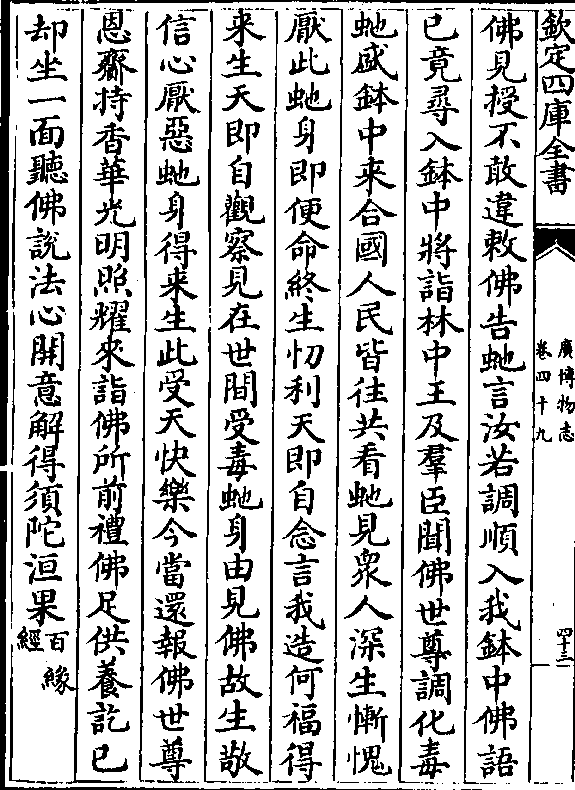 欽定四庫全書
廣博物志
卷四十九
四十三
佛見授不敢違敕佛告虵言汝若調順入我鉢中佛語
已竟尋入鉢中將詣林中王及羣臣聞佛世尊調化毒
虵盛鉢中来合國人民皆往共看虵見衆人深生慚愧
厭此虵身即便命終生忉利天即自念言我造何福得
来生天即自觀察見在世間受毒虵身由見佛故生敬
信心厭惡虵身得来生此受天快樂今當還報佛世尊
恩齎持香華光明照耀来詣佛所前禮佛足供養訖已
却坐一面聽佛説法心開意解得須陀洹果百緣
經